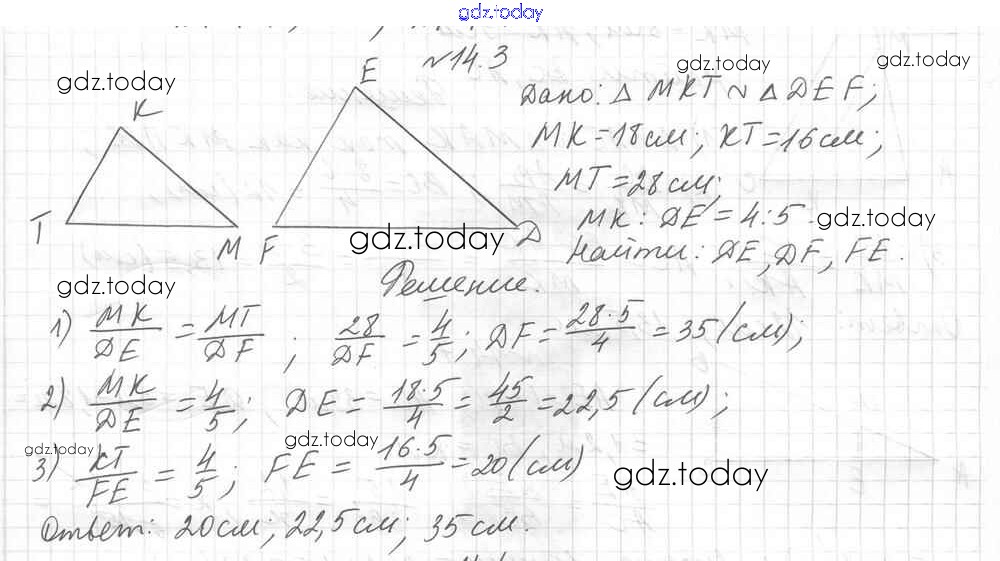 gdz.today
№14.3
gdz.today
gdz.today
gdz.today
K
E
T
M
F
D
Дано: △ MKT ~ △ DEF;
MK = 18 см; KT = 16 см;
MT = 28 см;
MK : DE = 4 : 5
gdz.today
gdz.today
Найти: DE, DF, FE.
gdz.today
Решение.
1) MK/DE = MT/DF; 28/DF = 4/5; DF = 28·5/4 = 35 (см);
2) MK/DE = 4/5; DE = 18·5/4 = 45/2 = 22,5 (см);
gdz.today
gdz.today
3) KT/FE = 4/5; FE = 16·5/4 = 20 (см)
gdz.today
Ответ: 20 см; 22,5 см; 35 см.